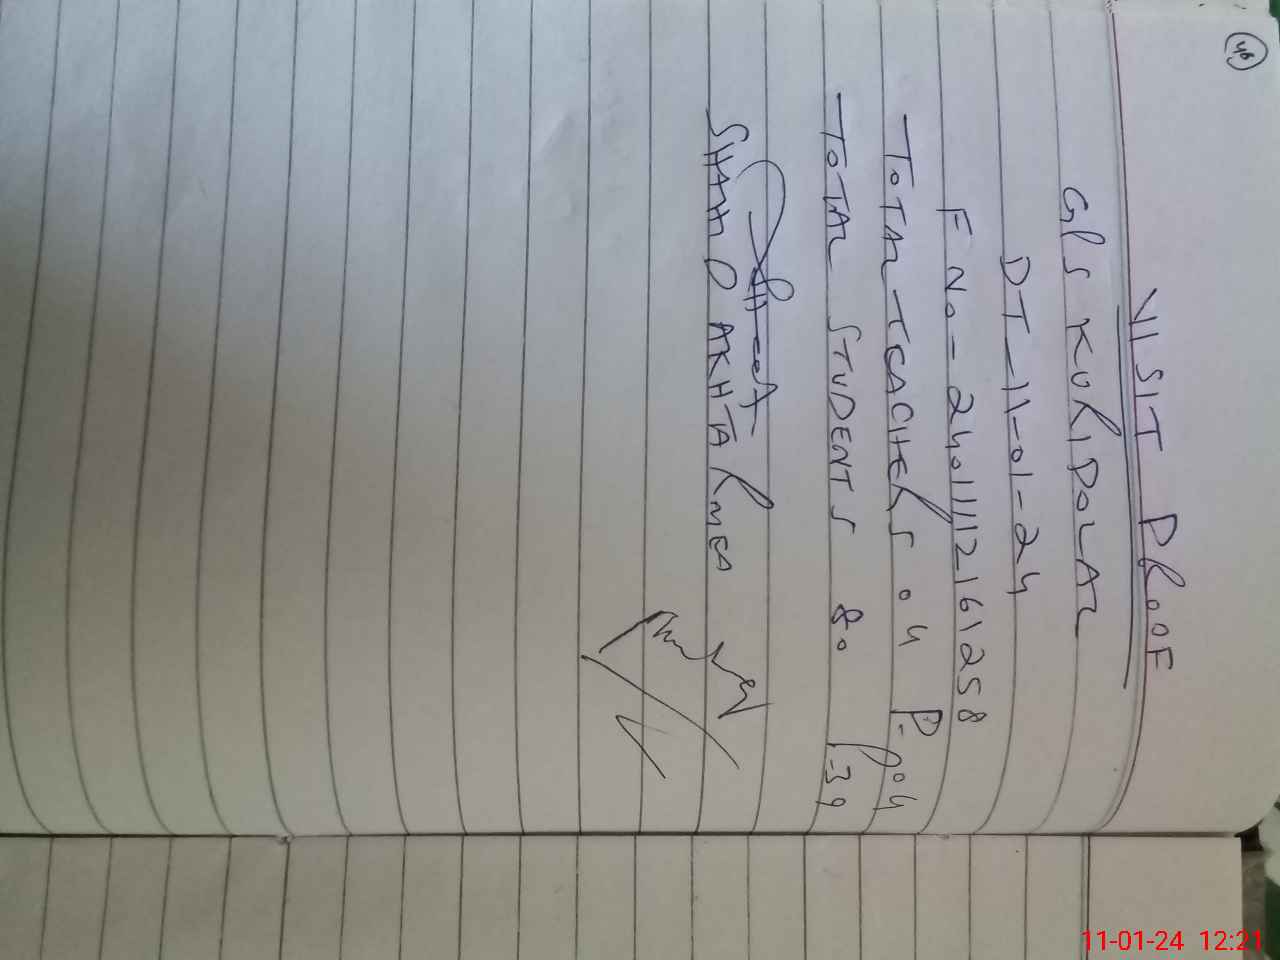 46
VISIT PROOF
GPS KURIDOLAR
DT-11-01-24
F NO-2401112161258
TOTAL TEACHERS 04 P-04
TOTAL STUDENTS 80 P-39
SHAHID AKHTAR
11-01-24 12:21